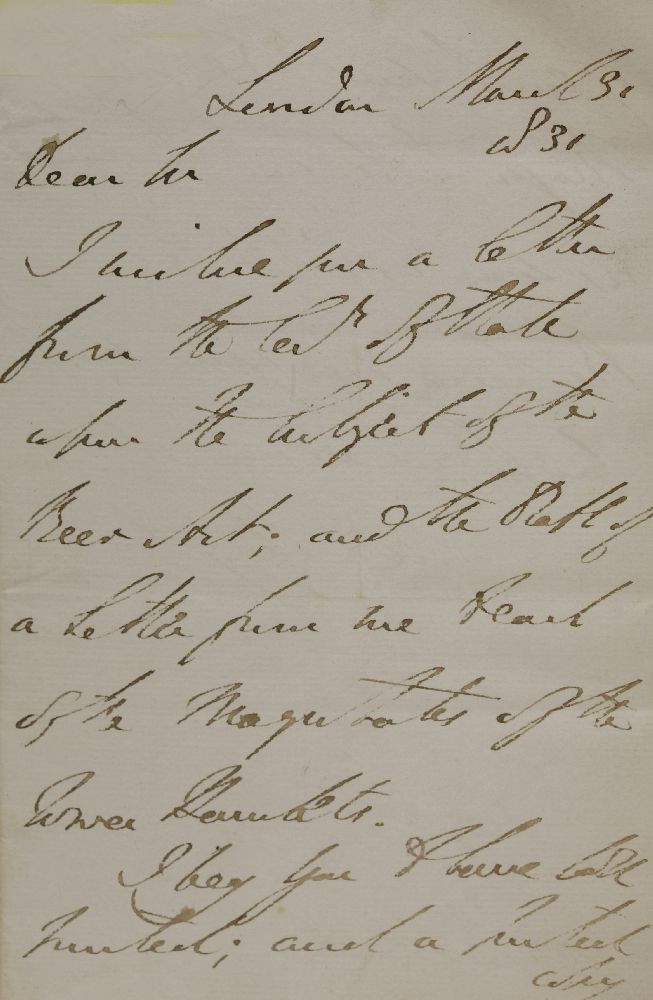 London March 31
1831
Dear Sir
I inclose you a letter
from the Secy of State
upon the subject of the
Beer Act; and the Draft of
a Letter from me to each
of the Magistrates of the
Tower Hamlets.
I beg you to have both
printed; and a printed
copy